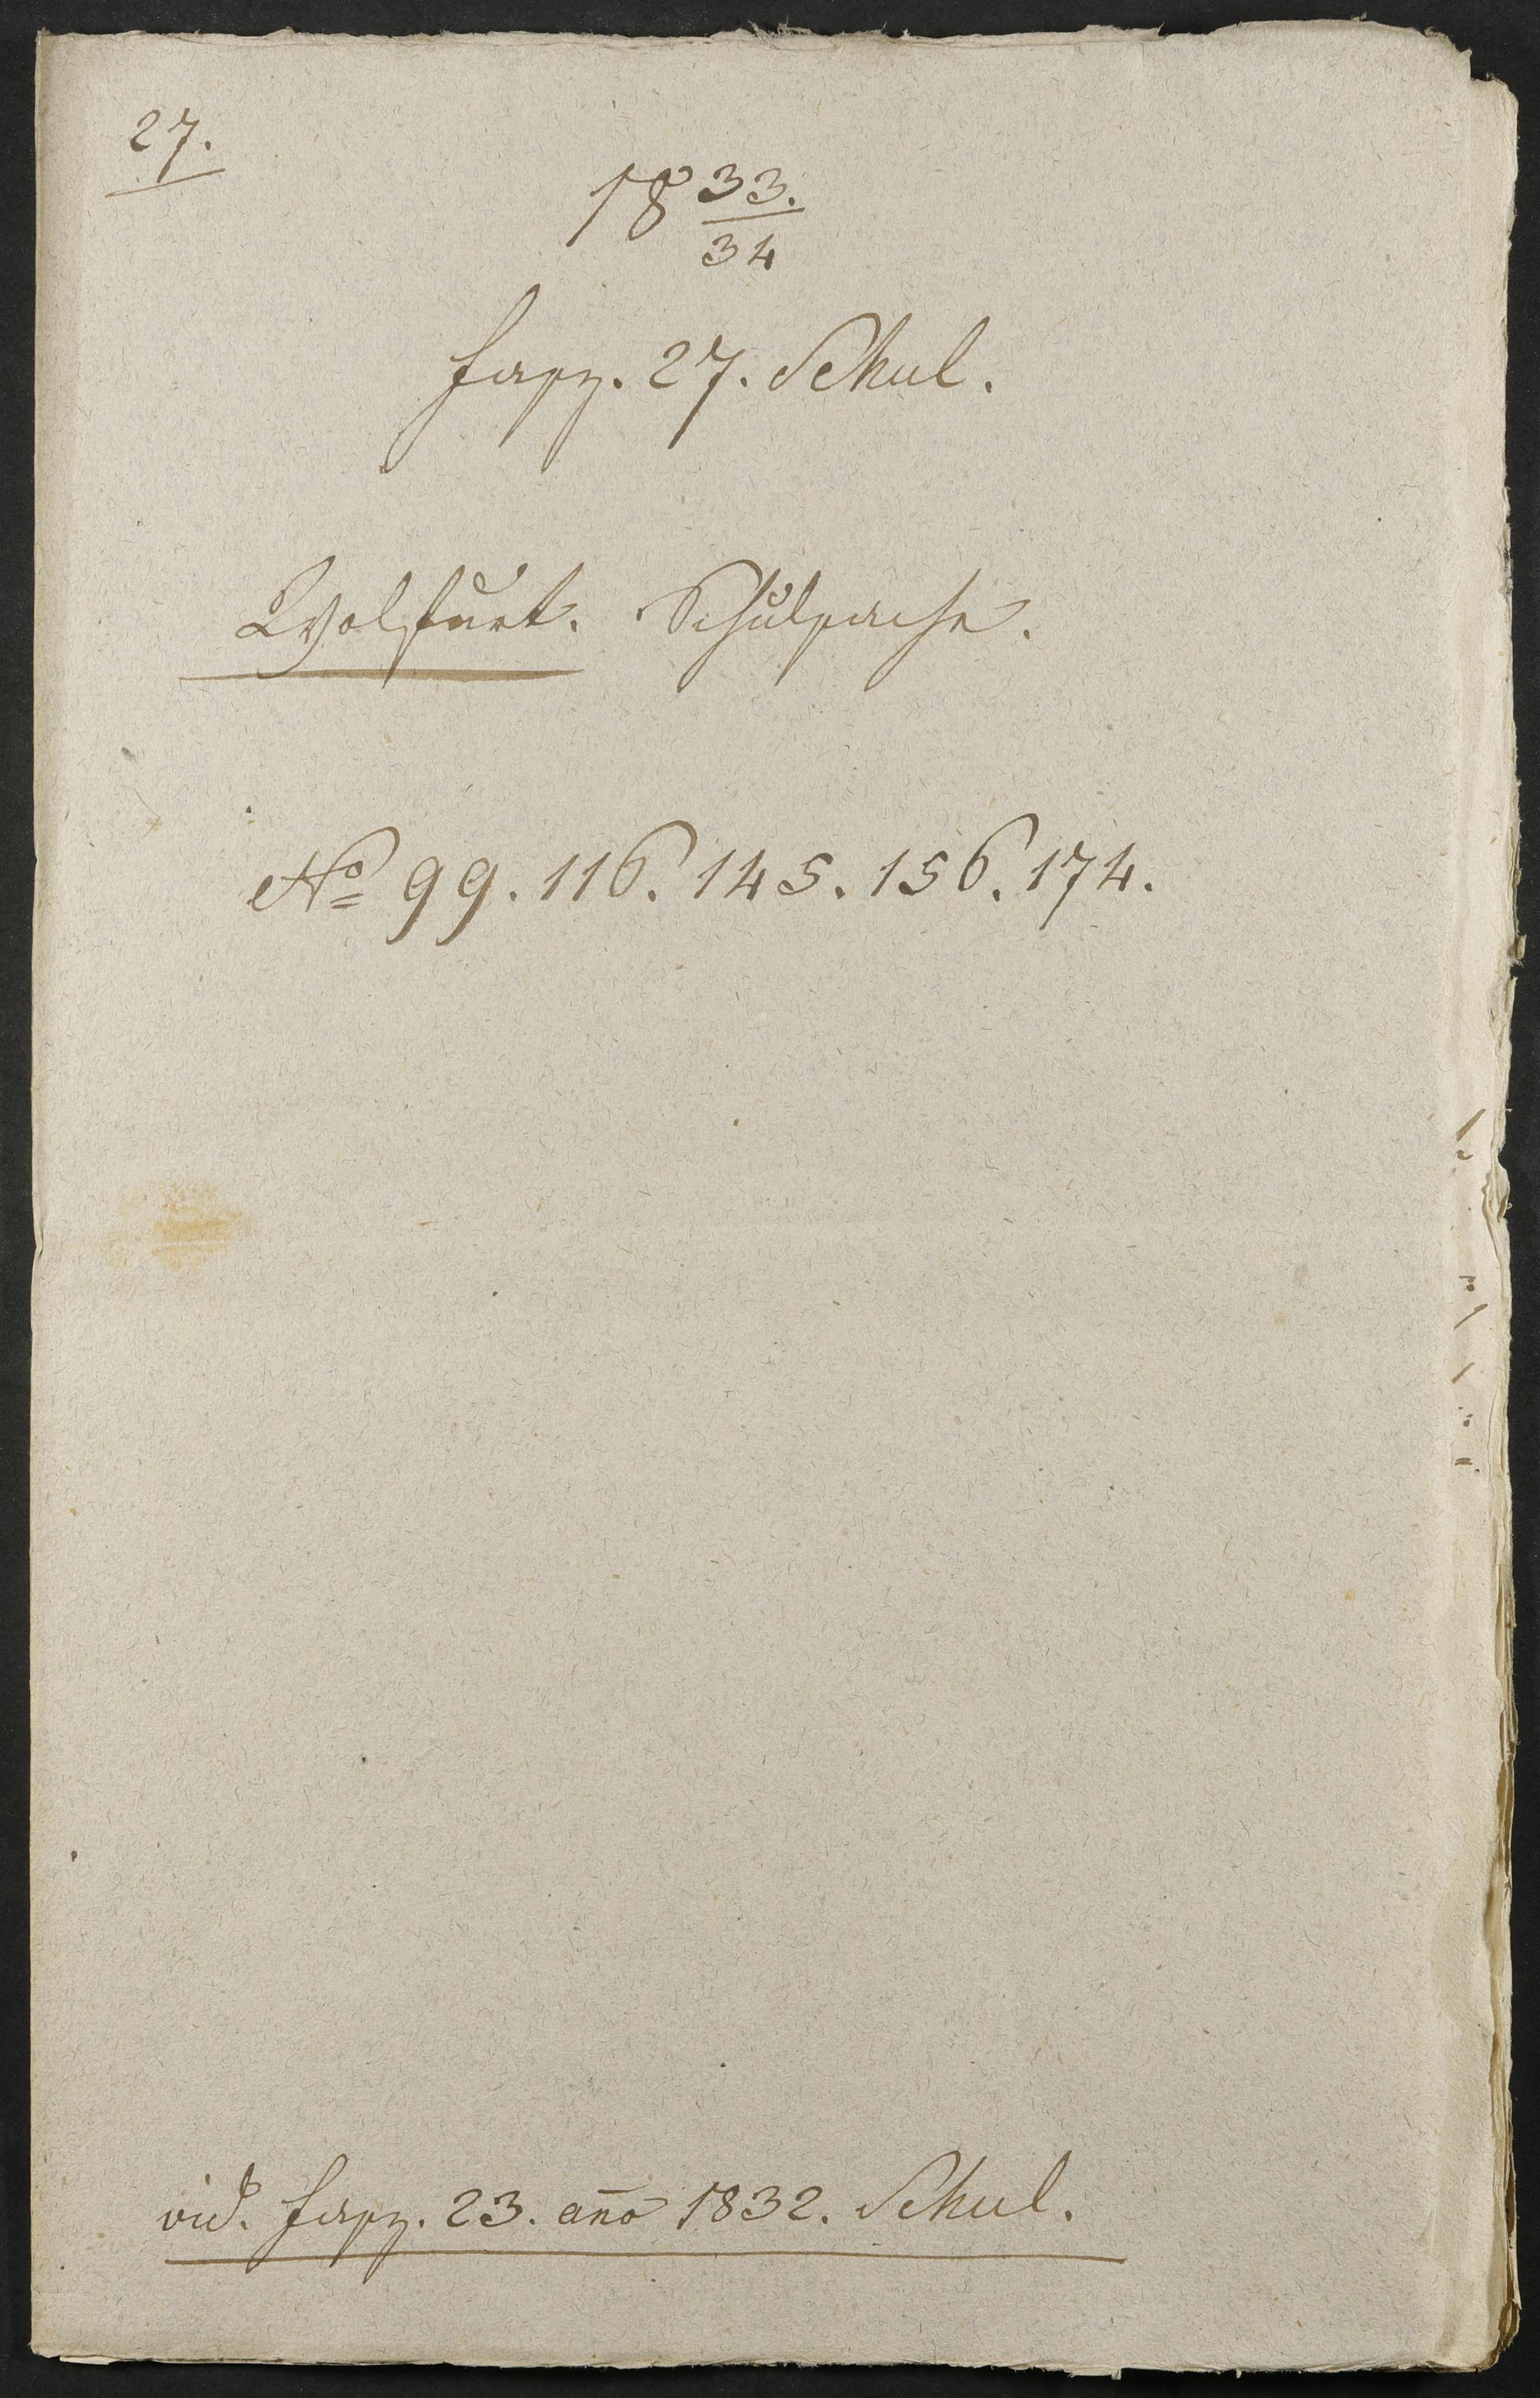 27.
18 33./34
fasz. 27. Schul.
Wolfurt. Schulsache.
No 99. 116. 145. 156. 174.
vid. fasz. 23. año 1832. Schul.